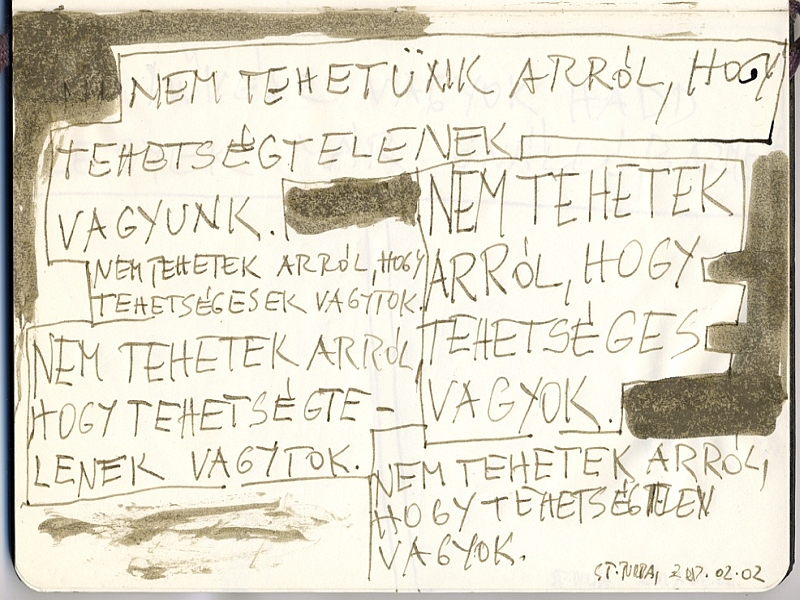 NEM TEHETÜNK ARRÓL, HOGY
TEHETSÉGTELENEK
VAGYUNK.
NEM TEHETEK ARRÓL, HOGY
TEHETSÉGESEK VAGYTOK.
NEM TEHETEK ARRÓL,
HOGY TEHETSÉGTE-
LENEK VAGYTOK.
NEM TEHETEK
ARRÓL, HOGY
TEHETSÉGES
VAGYOK.
NEM TEHETEK ARRÓL,
HOGY TEHETSÉGTELEN
VAGYOK.
02.02